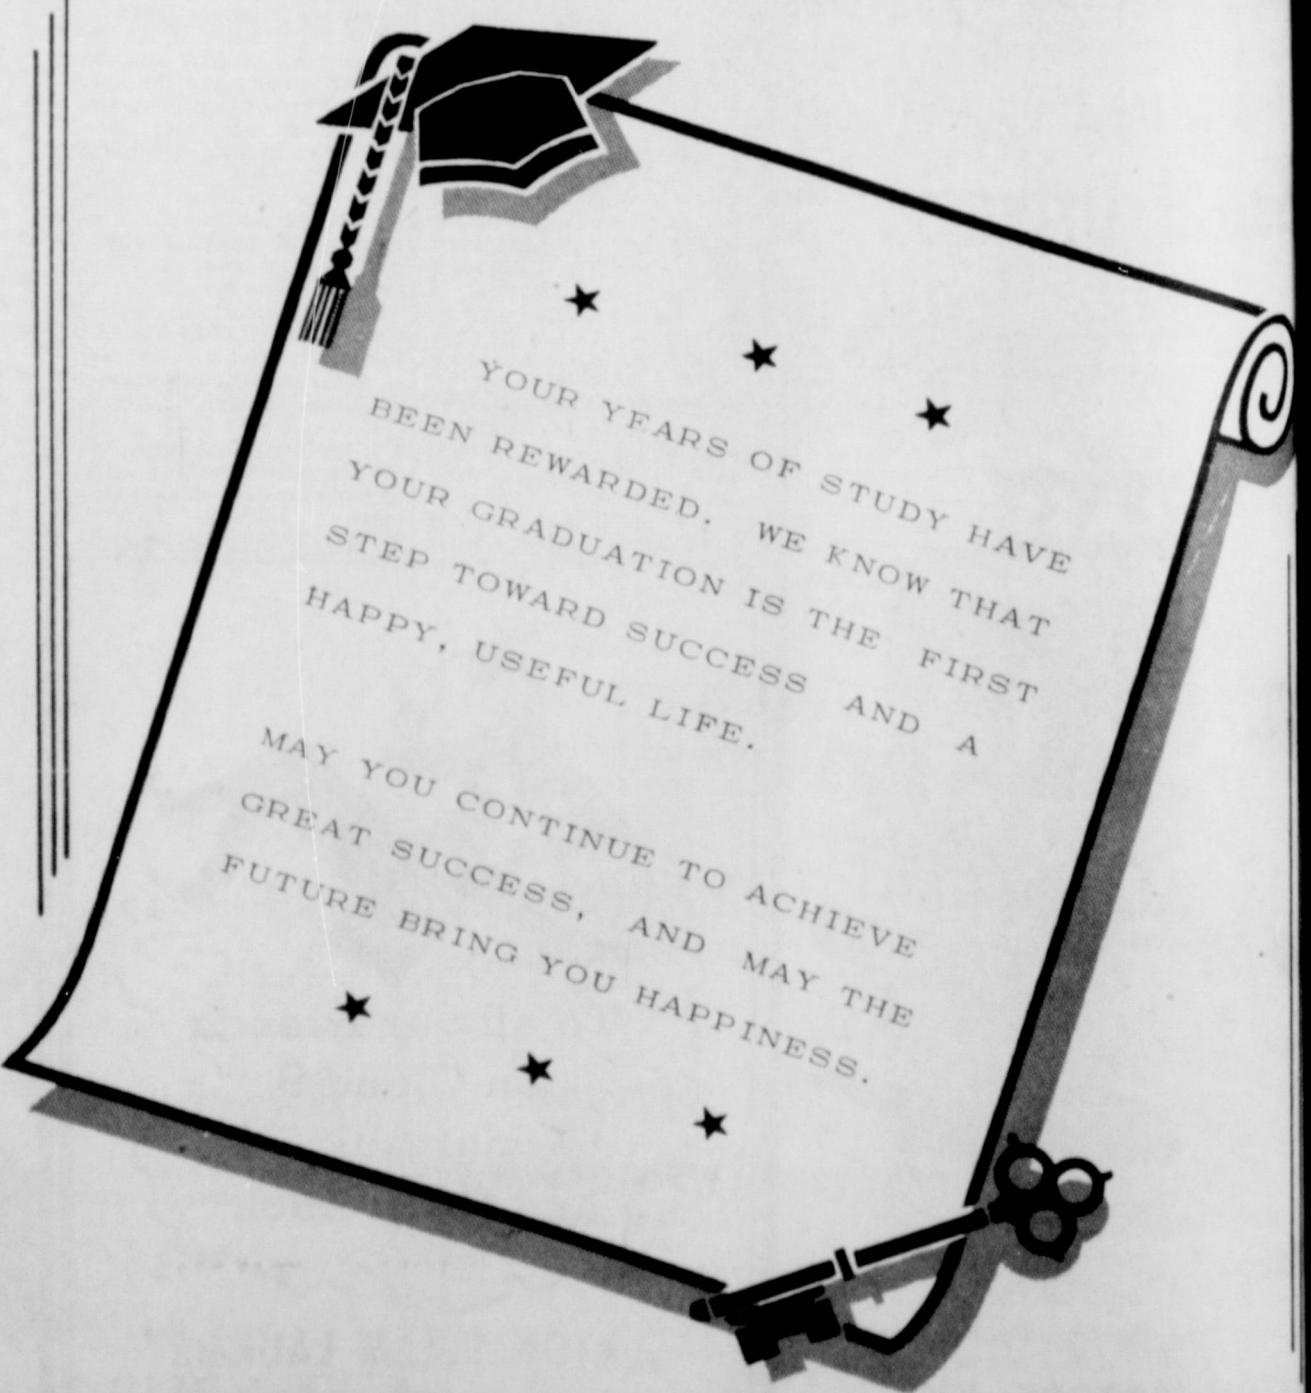 YOUR YEARS OF STUDY HAVE
BEEN REWARDED. WE KNOW THAT
YOUR GRADUATION IS THE FIRST
STEP TOWARD SUCCESS AND A
HAPPY, USEFUL LIFE.
MAY YOU CONTINUE TO ACHIEVE
GREAT SUCCESS, AND MAY THE
FUTURE BRING YOU HAPPINESS.